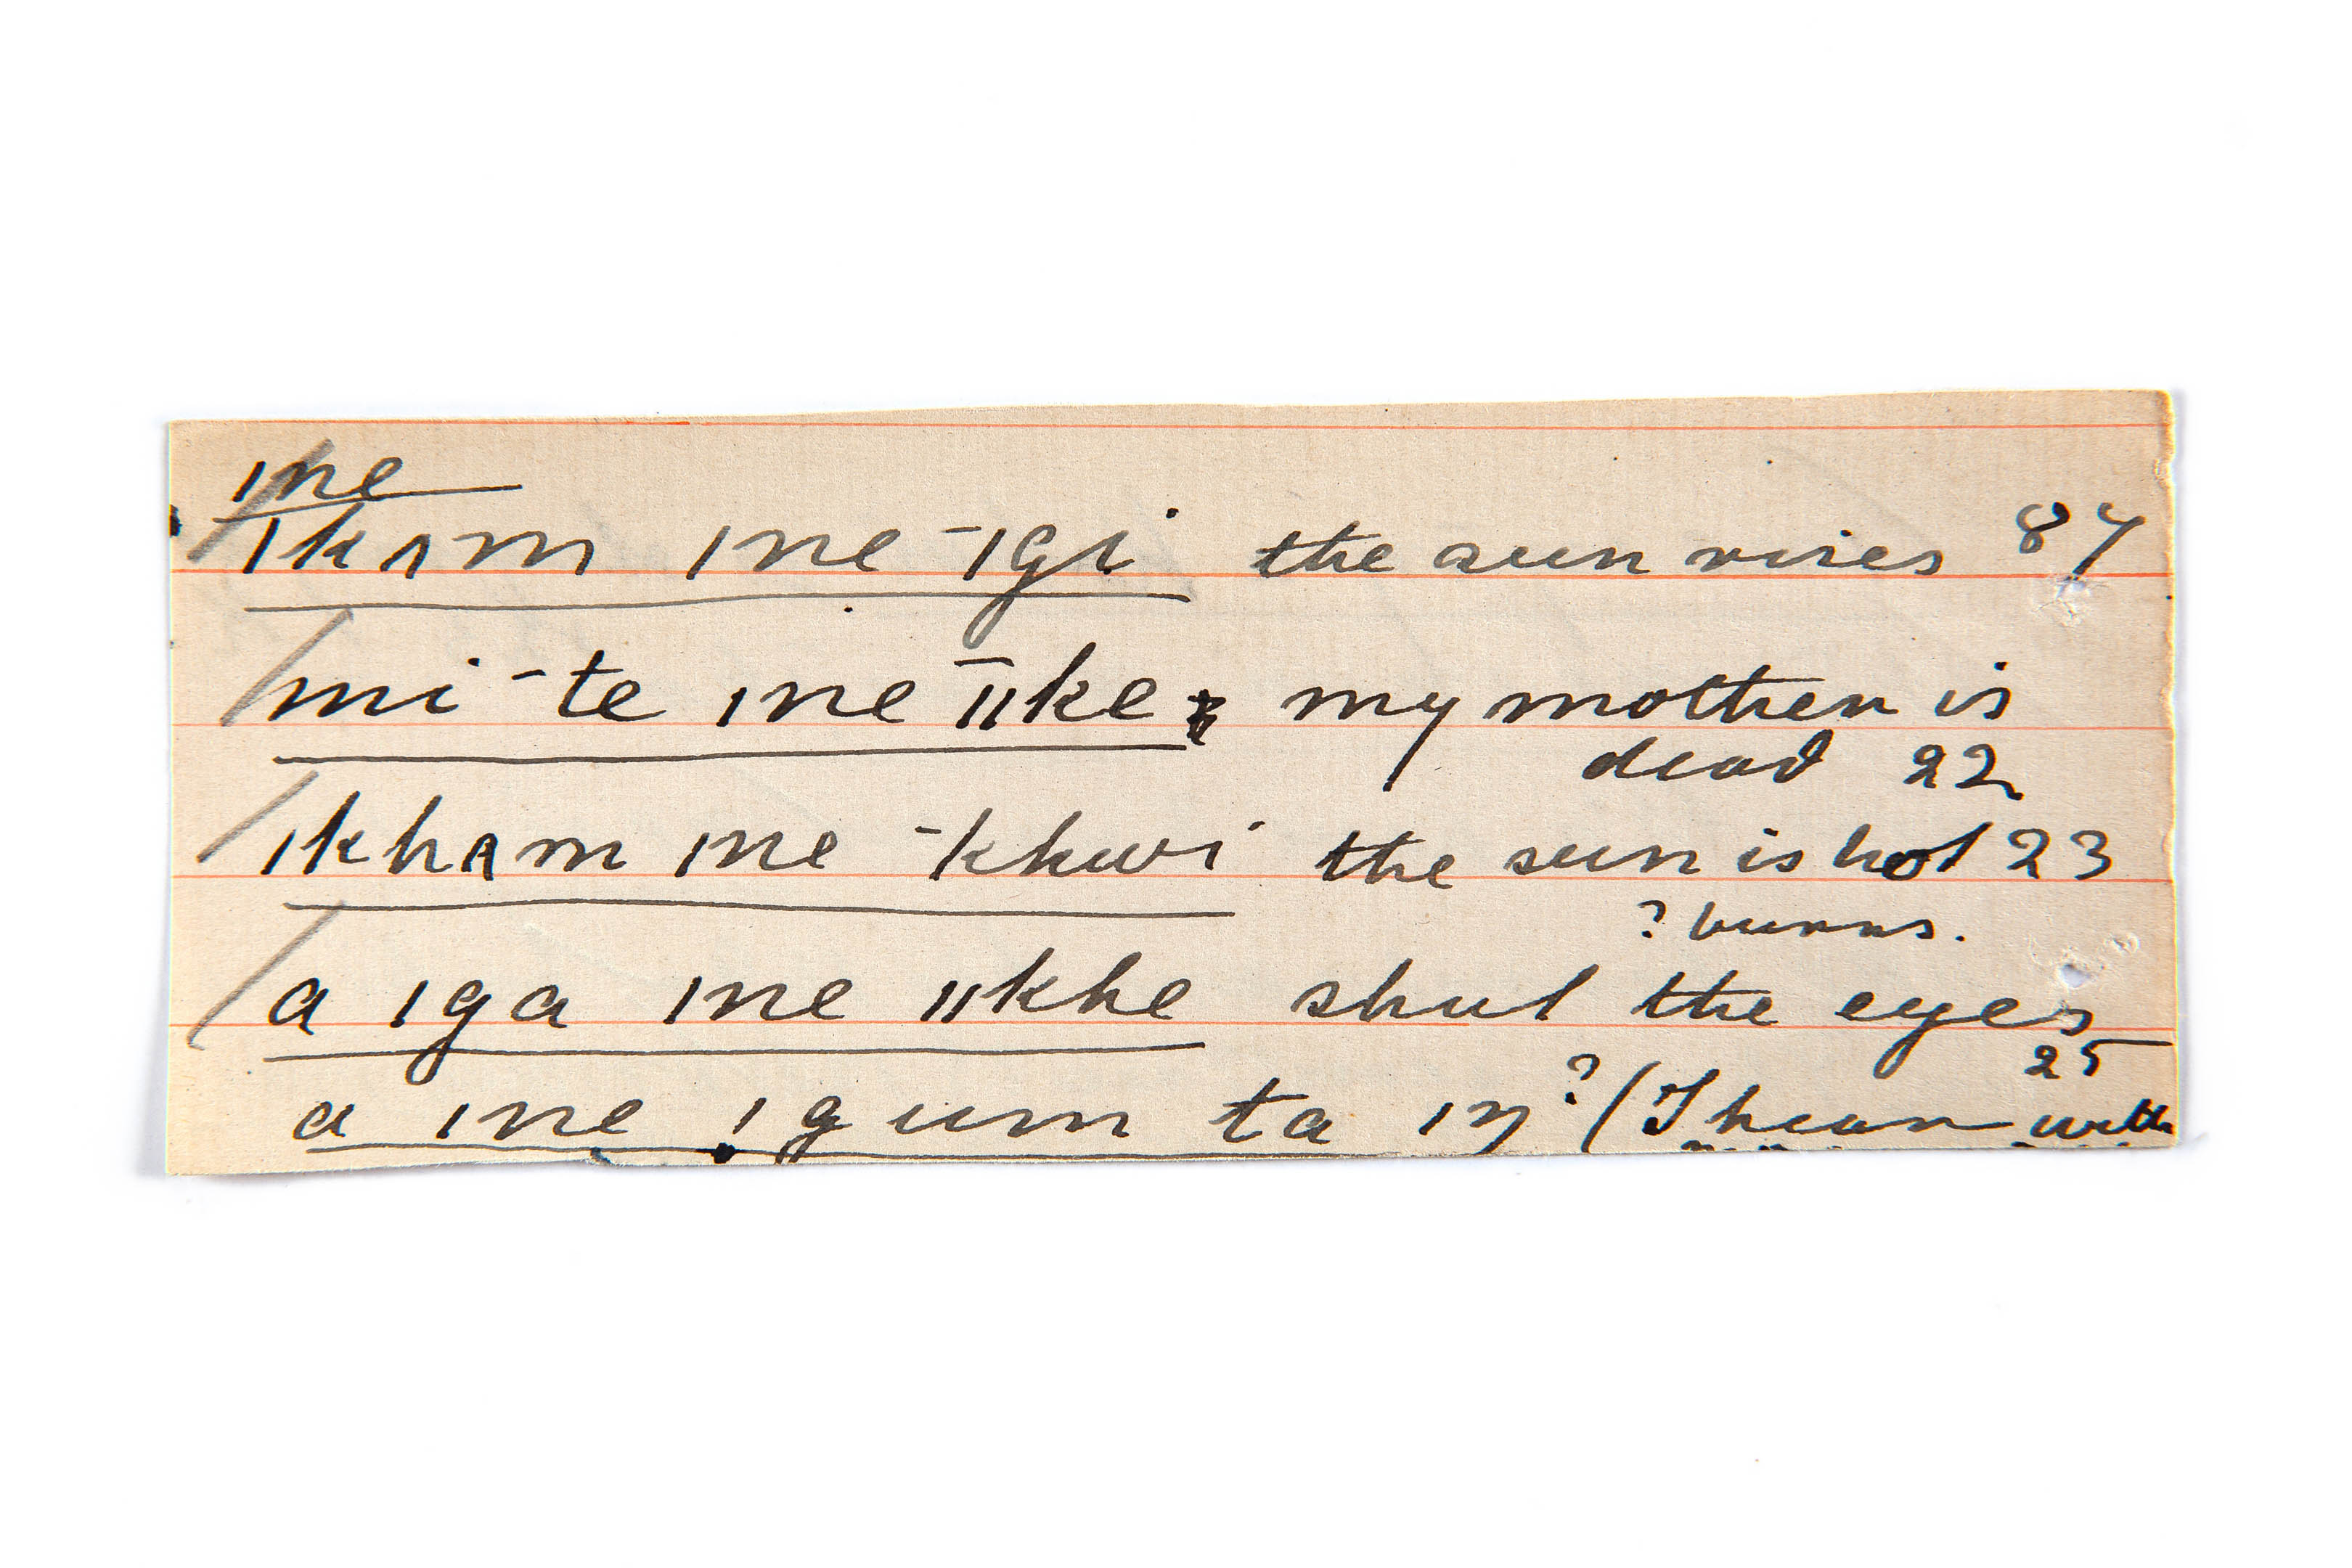 ǀne
ǀkʌm ǀne ¯ǀgi the sun rises 87
mi ¯te ǀne ¯ǁke my mother is
dead 22
ǀkhʌm ǀne ¯khwi the sun is hot 23
? burns.
a ǀga ǀne ǁkhe shut the eyes
25
a ǀne !gum ta ǀŋ ? (I hear with